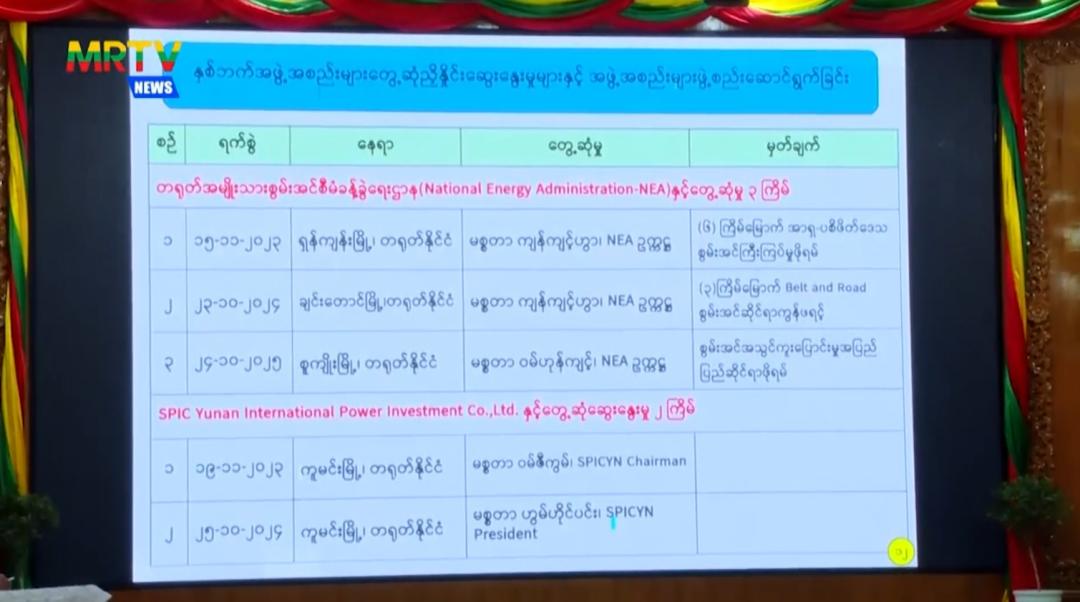 MRTV
NEWS
နှစ်ဘက်အဖွဲ့အစည်းများတွေ့ဆုံညှိနှိုင်းဆွေးနွေးမှုများနှင့် အဖွဲ့အစည်းများဖွဲ့စည်းဆောင်ရွက်ခြင်း
စဉ် ရက်စွဲ နေရာ တွေ့ဆုံမှု မှတ်ချက်
တရုတ်အမျိုးသားစွမ်းအင်စီမံခန့်ခွဲရေးဌာန(National Energy Administration-NEA)နှင့်တွေ့ဆုံမှု ၃ ကြိမ်
၁ ၁၅-၁၁-၂၀၂၃ ရှန်ကျန်းမြို့၊ တရုတ်နိုင်ငံ မစ္စတာ ကျန်ကျင့်ဟွာ၊ NEA ဥက္ကဋ္ဌ (၆) ကြိမ်မြောက် အာရှ-ပစိဖိတ်ဒေသ
စွမ်းအင်ကြီးကြပ်မှုဖိုရမ်
၂ ၂၃-၁၀-၂၀၂၄ ချင်းတောင်မြို့၊တရုတ်နိုင်ငံ မစ္စတာ ကျန်ကျင့်ဟွာ၊ NEA ဥက္ကဋ္ဌ (၃)ကြိမ်မြောက် Belt and Road
စွမ်းအင်ဆိုင်ရာကွန်ဖရင့်
၃ ၂၄-၁၀-၂၀၂၅ စူကျိုးမြို့၊ တရုတ်နိုင်ငံ မစ္စတာ ဝမ်ဟုန်ကျင့်၊ NEA ဥက္ကဋ္ဌ စွမ်းအင်အသွင်ကူးပြောင်းမှုအပြည်
ပြည်ဆိုင်ရာဖိုရမ်
SPIC Yunan International Power Investment Co.,Ltd. နှင့်တွေ့ဆုံဆွေးနွေးမှု ၂ ကြိမ်
၁ ၁၉-၁၁-၂၀၂၃ ကူမင်းမြို့၊ တရုတ်နိုင်ငံ မစ္စတာ ဝမ်ဇီကွမ်၊ SPICYN Chairman
၂ ၂၅-၁၀-၂၀၂၄ ကူမင်းမြို့၊ တရုတ်နိုင်ငံ မစ္စတာ ဟွမ်ဟိုင်ပင်း၊ SPICYN
President
၁၂